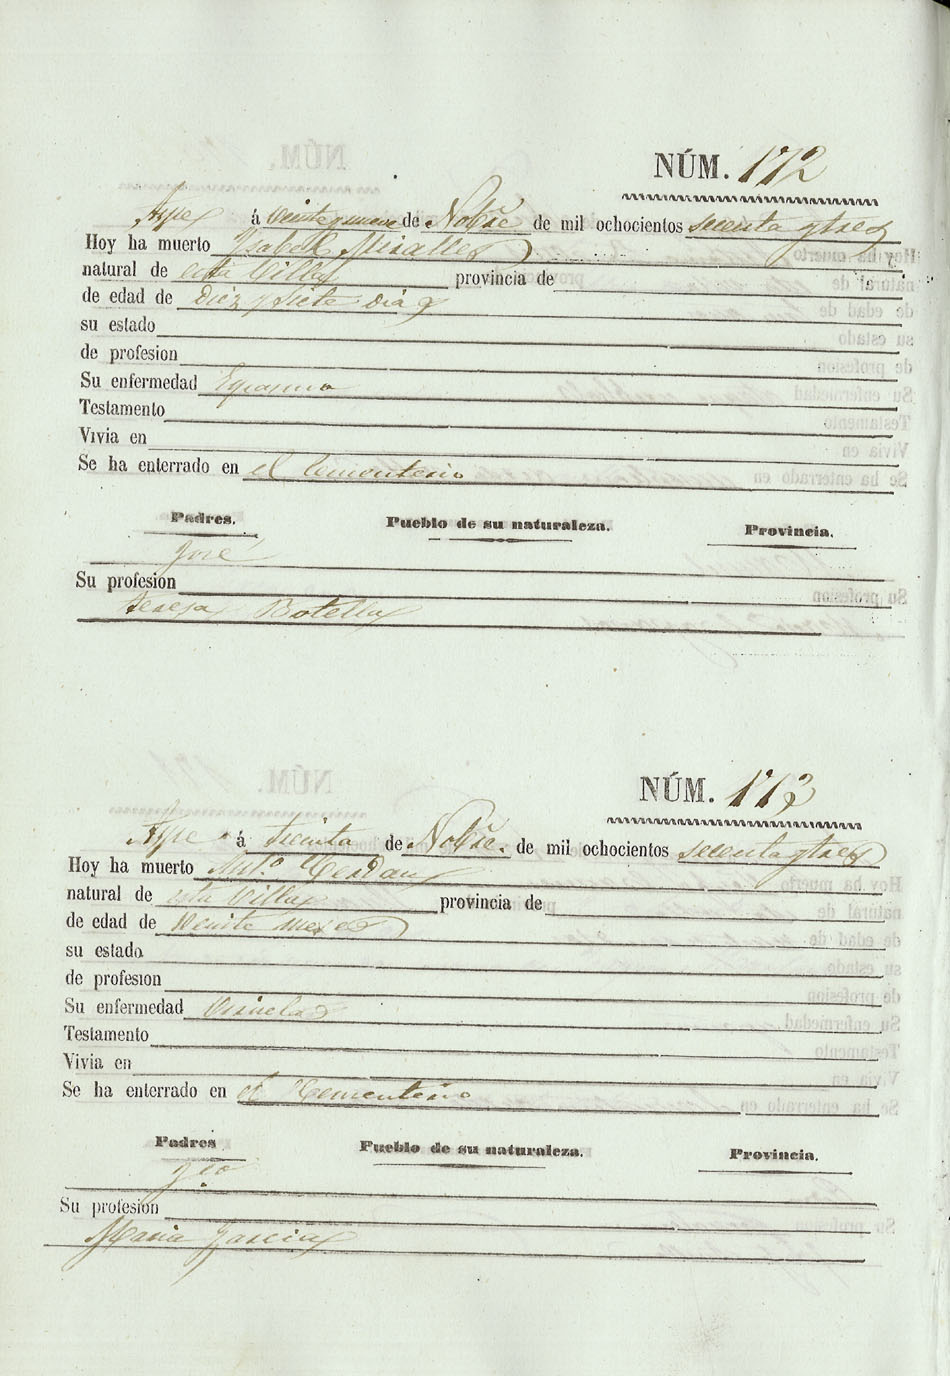 NÚM. 172
Aspe á veintegnueve de Nobre de mil ochocientos secenta ytres
Hoy ha muerto Ysabel Miralles
natural de esta Villa provincia de
de edad de Diez y siete dias
su estado
de profesion
Su enfermedad Espasmo
Testamento
Vivia en
Se ha enterrado en el Cementerio
Padres. Pueblo de su naturaleza. Provincia.
José
Su profesion
Teresa Botella
NÚM. 173
Aspe á treinta de Nobre. de mil ochocientos secenta ytres
Hoy ha muerto Cerdan
natural de esta Villa provincia de
de edad de meses
su estado
de profesion
Su enfermedad Viruelas
Testamento
Vivia en
Se ha enterrado en el Cementerio
Padres Pueblo de su naturaleza. Provincia.
Su profesion
Maria Garcia